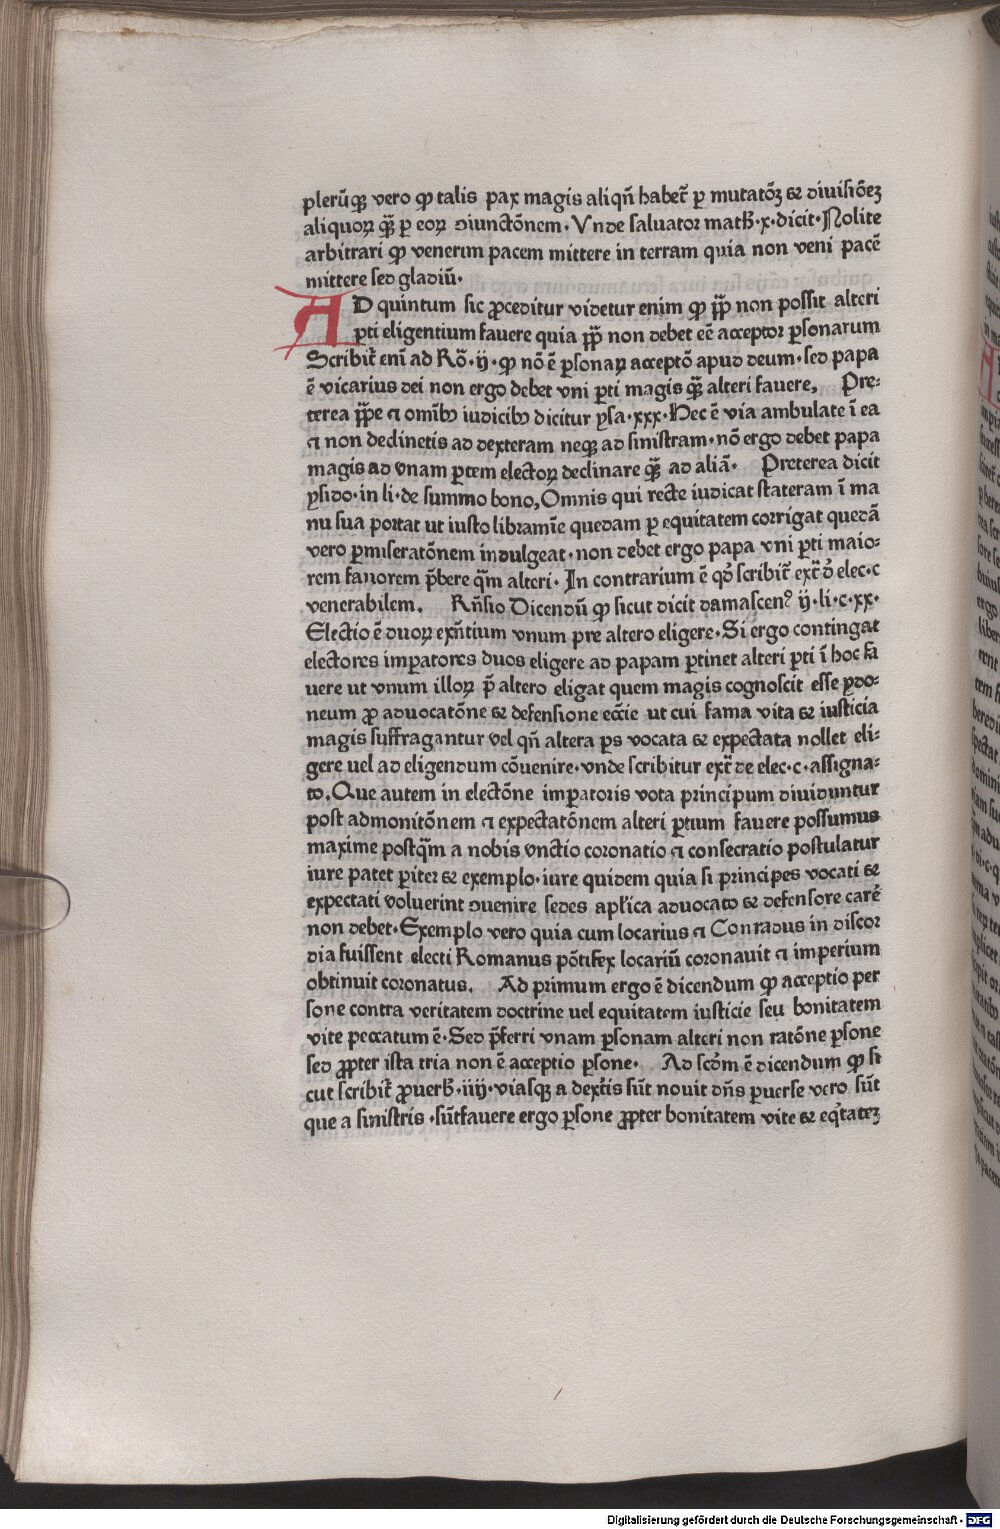 plerūqꝫ vero ꝙ talis pax magis aliqñ habet̃ ꝑ mutatōꝫ ⁊ diuisiōeꝫ
aliquoꝝ qꝫ̃ ꝑ eoꝝ ꝯiunctōnem· Vnde saluator math̃·x·dicit·Nolite
arbitrari ꝙ venerim pacem mittere in terram quia non veni pacē
mittere sed gladiū·
AD quintum sic ꝓceditur videtur enim ꝙ pp̃ non possit alteri
ꝑti eligentium fauere quia pp̃ non debet eē acceptor ꝑsonarum
Scribit̃ enī ad Rō·ij·ꝙ nō ē ꝑsonaꝝ acceptō apud deum·sed papa
ē vicarius dei non ergo debet vni ꝑti magis qꝫ̃ alteri fauere, Pre⸗
terea pp̃e ⁊ omībꝰ iudicibꝰ dicitur ysa·xxx·Hec ē via ambulate ī ea
⁊ non declinetis ad dexteram neqꝫ ad sinistram·nō ergo debet papa
magis ad vnam ꝑtem electoꝝ declinare qꝫ̃ ad aliā· Preterea dicit
ysido·in li·de summo bono, Omnis qui recte iudicat stateram ī ma
nu sua portat ut iusto libramīe quedam ꝑ equitatem corrigat quedā
vero ꝑmiseratōnem indulgeat·non debet ergo papa vni ꝑti maio⸗
rem fauorem p̄bere qm̃ alteri· In contrarium ē qđ scribit̃ ext̃ đ elec·c
venerabilem. Rñsio Dicendū ꝙ sicut dicit damascenꝰ ij·li·c·xx·
Electio ē duoꝝ exñtium vnum pre altero eligere·Si ergo contingat
electores imꝑatores duos eligere ad papam ꝑtinet alteri ꝑti ī hoc fa
uere ut vnum illoꝝ p̄ altero eligat quem magis cognoscit esse ydo⸗
neum ꝓ aduocatōne ⁊ defensione ecc̄ie ut cui fama vita ⁊ iusticia
magis suffragantur vel qñ altera ꝑs vocata ⁊ expectata nollet eli⸗
gere uel ad eligendum cōuenire·vnde scribitur ext̃ de elec·c·assigna⸗
to. Que autem in electōne imꝑatoris vota principum diuiduntur
post admonitōnem ⁊ expectatōnem alteri ꝑtium fauere possumus
maxime postqm̃ a nobis vnctio coronatio ⁊ consecratio postulatur
iure patet ꝑiter ⁊ exemplo·iure quidem quia si principes vocati ⁊
expectati voluerint ꝯuenire sedes apl̃ica aduocato ⁊ defensore carē
non debet·Exemplo vero quia cum locarius ⁊ Conradus in discor
dia fuissent electi Romanus pōtifex locariū coronauit ⁊ imperium
obtinuit coronatus. Ad primum ergo ē dicendum ꝙ acceptio per
sone contra veritatem doctrine uel equitatem iusticie seu bonitatem
vite peccatum ē·Sed p̄ferri vnam ꝑsonam alteri non ratōne ꝑsone
sed ꝓpter ista tria non ē acceptio ꝑsone· Ad scđm ē dicendum ꝙ si
cut scribit̃ ꝓuerb̃·iiij·viasqꝫ a dext̃is sūt nouit dñs ꝑuerse vero sūt
que a sinistris·sūtfauere ergo ꝑsone ꝓpter bonitatem vite ⁊ eq̇tateꝫ
Digitalisierung gefördert durch die Deutsche Forschungsgemeinschaft - DFG